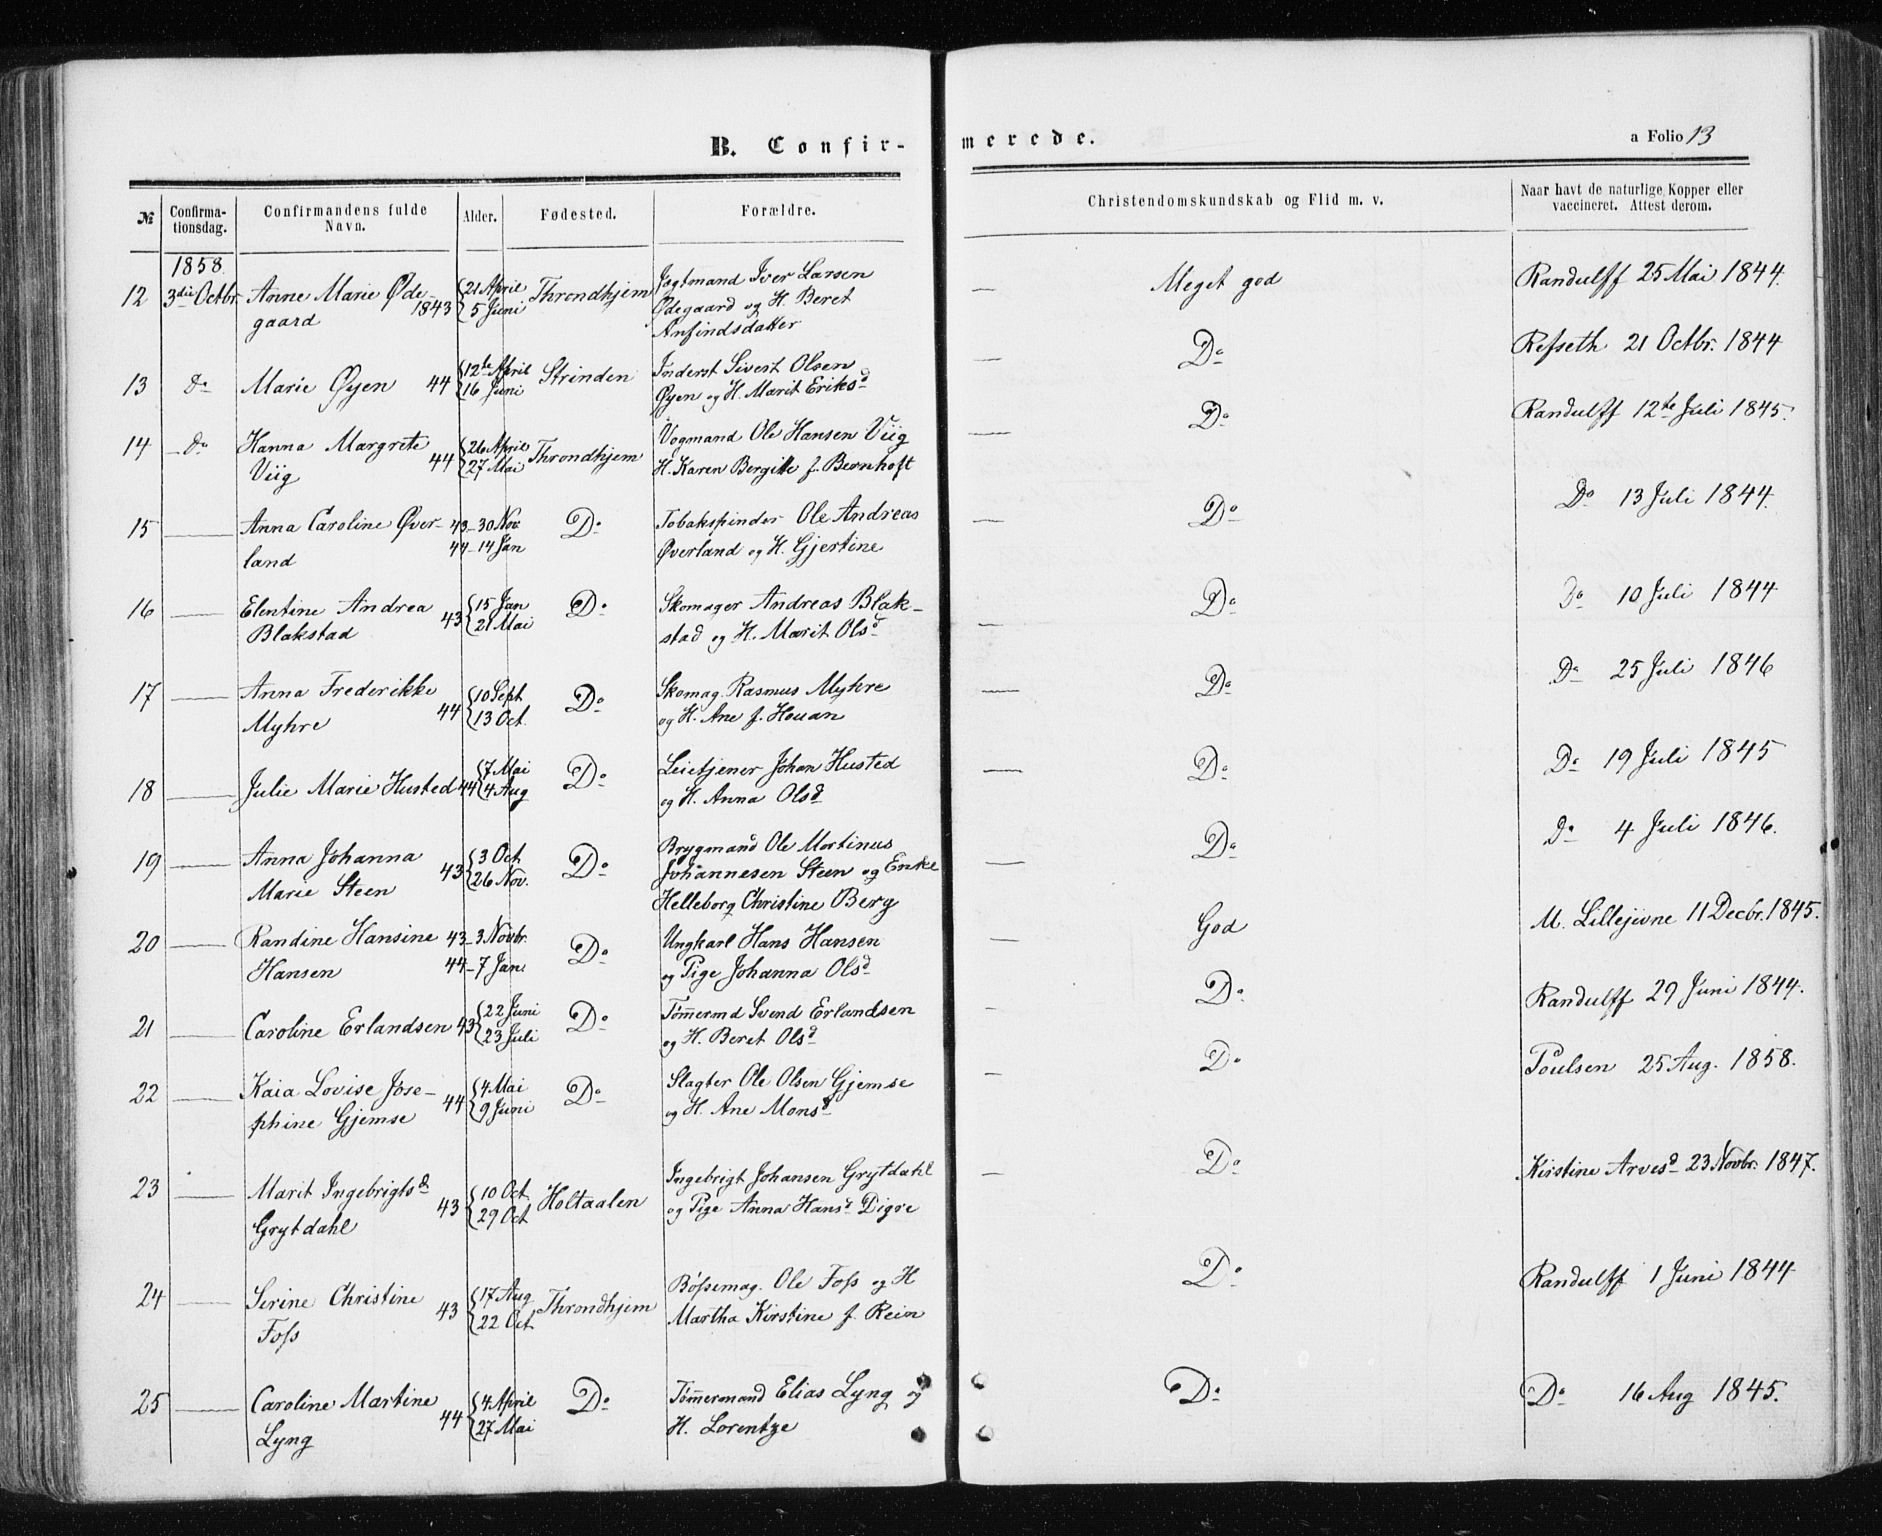 B. Confir-
merede.
a Folio 13
№ Confirma-tionsdag. Confirmandens fulde Navn. Alder. Fødested. Forældre. Christendomskundskab og Flid m. v. Naar havt de naturlige Kopper eller vaccineret. Attest derom.
1858.
12 3die Octbr. Anne Marie Øde- 1843 {21 April Throndhjem Jagtmand Iver Larsen — Meget god Randulff 25 Mai 1844.
gaard 5 Juni Ødegaard og H. Beret
Anfindsdatter
13 Do Marie Øyen 44 {12te April Strinden Inderst Sivert Olsen — Do Refseth 21 Octbr. 1844
16 Juni Øyen og H. Marit Eriksd
14 Do Hanna Margrete 44 {26 April Throndhjem Vogmand Ole Hansen Viig — Do Randulff 12te Juli 1845.
Viig 27 Mai H. Karen Bergitte f. Bernhoft
15 — Anna Caroline Øver- 43-30 Nov. Do Tobakspinder Ole Andreas — Do Do 13 Juli 1844.
land 44-14 Jan Øverland og H. Gjertine
16 — Elentine Andrea 43 {15 Jan Do Skomager Andreas Blak- — Do Do 10 Juli 1844
Blakstad 21 Mai stad og H. Marit Olsd
17 — Anna Frederikke 44 {10 Sept Do Skomag. Rasmus Myhre — Do Do 25 Juli 1846
Myhre 13 Oct. og H. Ane f. Houan
18 — Julie Marie Husted 44 {7 Mai Do Leietjener Johan Husted — Do Do 19 Juli 1845
4 Aug og H. Anna Olsd
19 — Anna Johanna 43 {3 Oct Do Brygmand Ole Martinus — Do Do 4 Juli 1846.
Marie Steen 26 Nov. Johannesen Steen og Enke
Helleborg Christine Berg
20 — Randine Hansine 43-3 Novbr. Do Ungkarl Hans Hansen — God M. Lillejevne 11 Decbr. 1845.
Hansen 44-7 Jan. og Pige Johanna Olsd
21 — Caroline Erlandsen 43 {22 Juni Do Tømermd Svend Erlandsen — Do Randulff 29 Juni 1844.
23 Juli og H. Beret Olsd
22 — Kaia Lovise Jose- 44 {4 Mai Do Slagter Ole Olsen Gjemse — Do Poulsen 25 Aug. 1858.
phine Gjemse 9 Juni og H. Ane Monsd
23 — Marit Ingebrigtsd 43 {10 Oct. Holtaalen Ingebrigt Johansen Grytdahl — Do Kirstine Arvesd 23 Novbr. 1847.
Grytdahl 29 Oct og Pige Anna Hansd Digre
24 — Serine Christine 43 {17 Aug Throndhjem Bøfsemag. Ole Fofs og H Do Randulff 1 Juni 1844
Fofs 22 Oct. Martha Kirstine f. Rein
25 — Caroline Martine 44 {4 April Do Tømermand Elias Lyng og Do Do 16 Aug 1845.
Lyng 27 Mai H. Lorentze